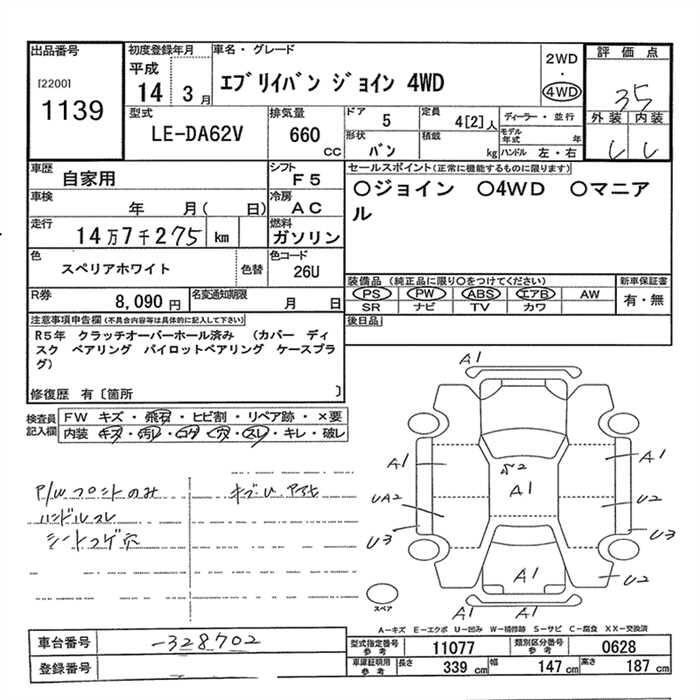 出品番号
[2200]
1139
初度登録年月
平成
14 3月
車名・グレード
エブリイバン ジョイン 4WD
2WD
・
4WD
評価点
35
外装 内装
型式
LE-DA62V
排気量
660
CC
ドア 5
定員 4[2]人
形状 バン
積載 kg
ディーラー・並行
モデル年式 年
ハンドル 左・右
車歴
自家用
シフト
F5
車検
年 月( 日)
冷房
AC
走行
14万7千275 km
燃料
ガソリン
色
スペリアホワイト
色替
色コード
26U
R券
8,090円
名変通知期限
月 日
セールスポイント(正常に機能するものに限ります)
○ジョイン ○4WD ○マニアル
装備品 (純正品に限り○をつけてください)
PS PW ABS エアB AW
SR ナビ TV カワ
新車保証書
有・無
後日品
注意事項申告欄(不具合内容等は具体的に記入して下さい)
R5年 クラッチオーバーホール済み (カバー ディ
スク ベアリング パイロットベアリング ケースプラ
グ)
修復歴 有〔箇所 〕
検査員記入欄
FW キズ・飛石・ヒビ割・リペア跡・×要
内装 キズ・汚レ・コゲ・穴・スレ・キレ・破レ
P/W フロントのみ
ハンドルスレ
シートコゲ穴
A1
A1
A1
A1
UA2
U2
U3
U3
A1
U2
A1
A1
スペア
A-キズ E-エクボ U-凹み W-補修跡 S-サビ C-腐食 XX-交換済
車台番号
-328702
登録番号
型式指定番号参考
11077
類別区分番号参考
0628
車庫証明用参考
長さ 339cm
幅 147cm
高さ 187cm